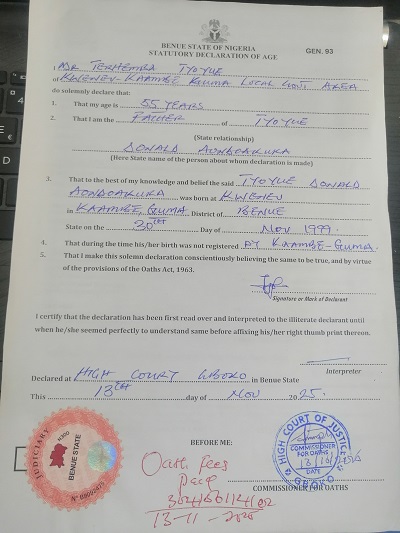 BENUE STATE OF NIGERIA
STATUTORY DECLARATION OF AGE
GEN. 93
I MR TERHEMBA TYOYUE
of KWENEV-KAAMBE GUMA LOCAL GOVT. AREA
do solemnly declare that:
1. That my age is 55 YEARS
2. That I am the FATHER of TYOYUE
(State relationship)
DONALD AONDOAKURA
(Here State name of the person about whom declaration is made)
3. That to the best of my knowledge and belief the said TYOYUE DONALD
AONDOAKURA was born at KWENEV
in KAAMBE, GUMA District of BENUE
State on the 30TH Day of NOV 1999.
4. That during the time his/her birth was not registered BY KAAMBE-GUMA.
5. That I make this solemn declaration conscientiously believing the same to be true, and by virtue
of the provisions of the Oaths Act, 1963.
Signature or Mark of Declarant
I certify that the declaration has been first read over and interpreted to the illiterate declarant until
when he/she seemed perfectly to understand same before affixing his/her right thumb print thereon.
Interpreter
Declared at HIGH COURT GBOKO in Benue State
This 13TH day of NOV 2025.
BEFORE ME:
JUDICIARY
BENUE STATE
Oath fees
Paid
13-11-2025
HIGH COURT OF JUSTICE
COMMISSIONER
FOR OATHS
DATE
GBOKO
COMMISSIONER FOR OATHS